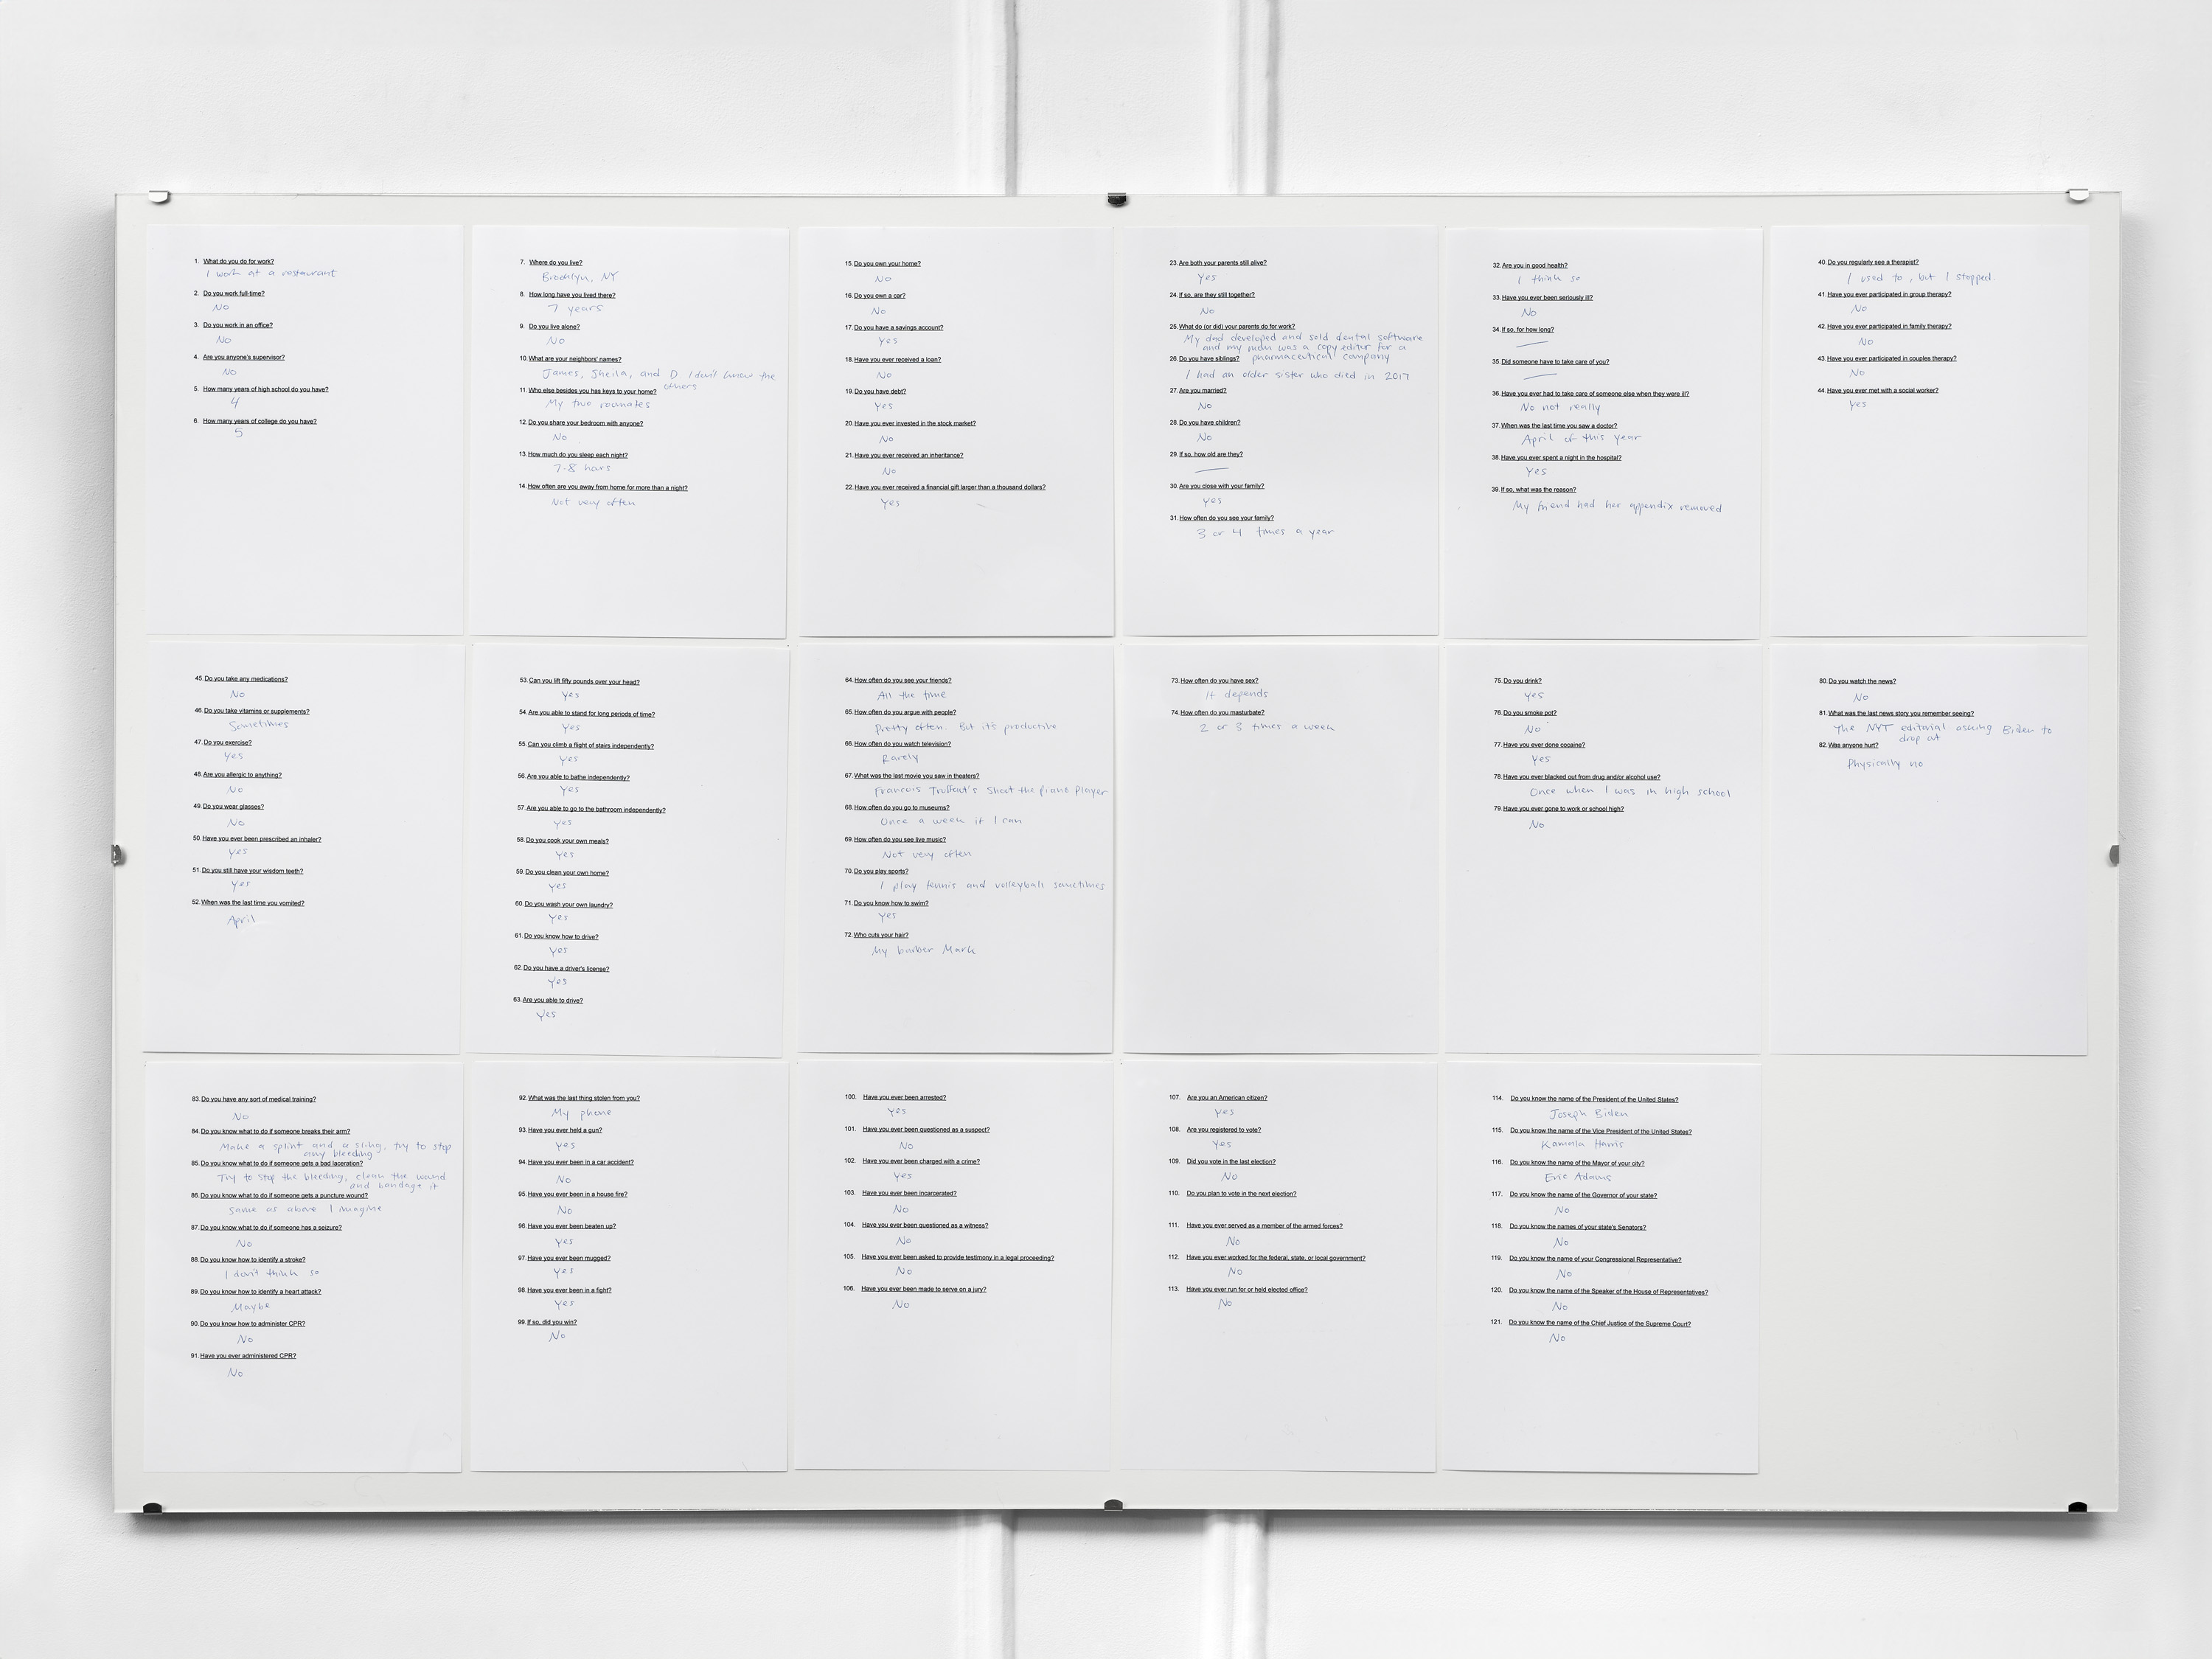 1. What do you do for work?
I work at a restaurant
2. Do you work full-time?
No
3. Do you work in an office?
No
4. Are you anyone's supervisor?
No
5. How many years of high school do you have?
4
6. How many years of college do you have?
5
7. Where do you live?
Brooklyn, NY
8. How long have you lived there?
7 years
9. Do you live alone?
No
10. What are your neighbors' names?
James, Sheila, and D I don't know the
others
11. Who else besides you has keys to your home?
My two roomates
12. Do you share your bedroom with anyone?
No
13. How much do you sleep each night?
7-8 hours
14. How often are you away from home for more than a night?
Not very often
15. Do you own your home?
No
16. Do you own a car?
No
17. Do you have a savings account?
Yes
18. Have you ever received a loan?
No
19. Do you have debt?
Yes
20. Have you ever invested in the stock market?
No
21. Have you ever received an inheritance?
No
22. Have you ever received a financial gift larger than a thousand dollars?
Yes
23. Are both your parents still alive?
Yes
24. If so, are they still together?
No
25. What do (or did) your parents do for work?
My dad developed and sold dental software
and my mom was a copy editor for a
pharmaceutical company
26. Do you have siblings?
I had an older sister who died in 2017
27. Are you married?
No
28. Do you have children?
No
29. If so, how old are they?
30. Are you close with your family?
Yes
31. How often do you see your family?
3 or 4 times a year
32. Are you in good health?
I think so
33. Have you ever been seriously ill?
No
34. If so, for how long?
35. Did someone have to take care of you?
36. Have you ever had to take care of someone else when they were ill?
No not really
37. When was the last time you saw a doctor?
April of this year
38. Have you ever spent a night in the hospital?
Yes
39. If so, what was the reason?
My friend had her appendix removed
40. Do you regularly see a therapist?
I used to, but I stopped.
41. Have you ever participated in group therapy?
No
42. Have you ever participated in family therapy?
No
43. Have you ever participated in couples therapy?
No
44. Have you ever met with a social worker?
Yes
45. Do you take any medications?
No
46. Do you take vitamins or supplements?
Sometimes
47. Do you exercise?
Yes
48. Are you allergic to anything?
No
49. Do you wear glasses?
No
50. Have you ever been prescribed an inhaler?
Yes
51. Do you still have your wisdom teeth?
Yes
52. When was the last time you vomited?
April
53. Can you lift fifty pounds over your head?
Yes
54. Are you able to stand for long periods of time?
Yes
55. Can you climb a flight of stairs independently?
Yes
56. Are you able to bathe independently?
Yes
57. Are you able to go to the bathroom independently?
Yes
58. Do you cook your own meals?
Yes
59. Do you clean your own home?
Yes
60. Do you wash your own laundry?
Yes
61. Do you know how to drive?
Yes
62. Do you have a driver's license?
Yes
63. Are you able to drive?
Yes
64. How often do you see your friends?
All the time
65. How often do you argue with people?
Pretty often. But it's productive
66. How often do you watch television?
Rarely
67. What was the last movie you saw in theaters?
Francois Truffaut's Shoot the Piano Player
68. How often do you go to museums?
Once a week if I can
69. How often do you see live music?
Not very often
70. Do you play sports?
I play tennis and volleyball sometimes
71. Do you know how to swim?
Yes
72. Who cuts your hair?
My barber Mark
73. How often do you have sex?
It depends
74. How often do you masturbate?
2 or 3 times a week
75. Do you drink?
Yes
76. Do you smoke pot?
No
77. Have you ever done cocaine?
Yes
78. Have you ever blacked out from drug and/or alcohol use?
Once when I was in high school
79. Have you ever gone to work or school high?
No
80. Do you watch the news?
No
81. What was the last news story you remember seeing?
The NYT editorial asking Biden to
drop out
82. Was anyone hurt?
Physically no
83. Do you have any sort of medical training?
No
84. Do you know what to do if someone breaks their arm?
Make a splint and a sling, try to stop
any bleeding
85. Do you know what to do if someone gets a bad laceration?
Try to stop the bleeding, clean the wound
and bandage it
86. Do you know what to do if someone gets a puncture wound?
Same as above I imagine
87. Do you know what to do if someone has a seizure?
No
88. Do you know how to identify a stroke?
I don't think so
89. Do you know how to identify a heart attack?
Maybe
90. Do you know how to administer CPR?
No
91. Have you ever administered CPR?
No
92. What was the last thing stolen from you?
My phone
93. Have you ever held a gun?
Yes
94. Have you ever been in a car accident?
No
95. Have you ever been in a house fire?
No
96. Have you ever been beaten up?
Yes
97. Have you ever been mugged?
Yes
98. Have you ever been in a fight?
Yes
99. If so, did you win?
No
100. Have you ever been arrested?
Yes
101. Have you ever been questioned as a suspect?
No
102. Have you ever been charged with a crime?
Yes
103. Have you ever been incarcerated?
No
104. Have you ever been questioned as a witness?
No
105. Have you ever been asked to provide testimony in a legal proceeding?
No
106. Have you ever been made to serve on a jury?
No
107. Are you an American citizen?
Yes
108. Are you registered to vote?
Yes
109. Did you vote in the last election?
No
110. Do you plan to vote in the next election?
111. Have you ever served as a member of the armed forces?
No
112. Have you ever worked for the federal, state, or local government?
No
113. Have you ever run for or held elected office?
No
114. Do you know the name of the President of the United States?
Joseph Biden
115. Do you know the name of the Vice President of the United States?
Kamala Harris
116. Do you know the name of the Mayor of your city?
Eric Adams
117. Do you know the name of the Governor of your state?
No
118. Do you know the names of your state's Senators?
No
119. Do you know the name of your Congressional Representative?
No
120. Do you know the name of the Speaker of the House of Representatives?
No
121. Do you know the name of the Chief Justice of the Supreme Court?
No